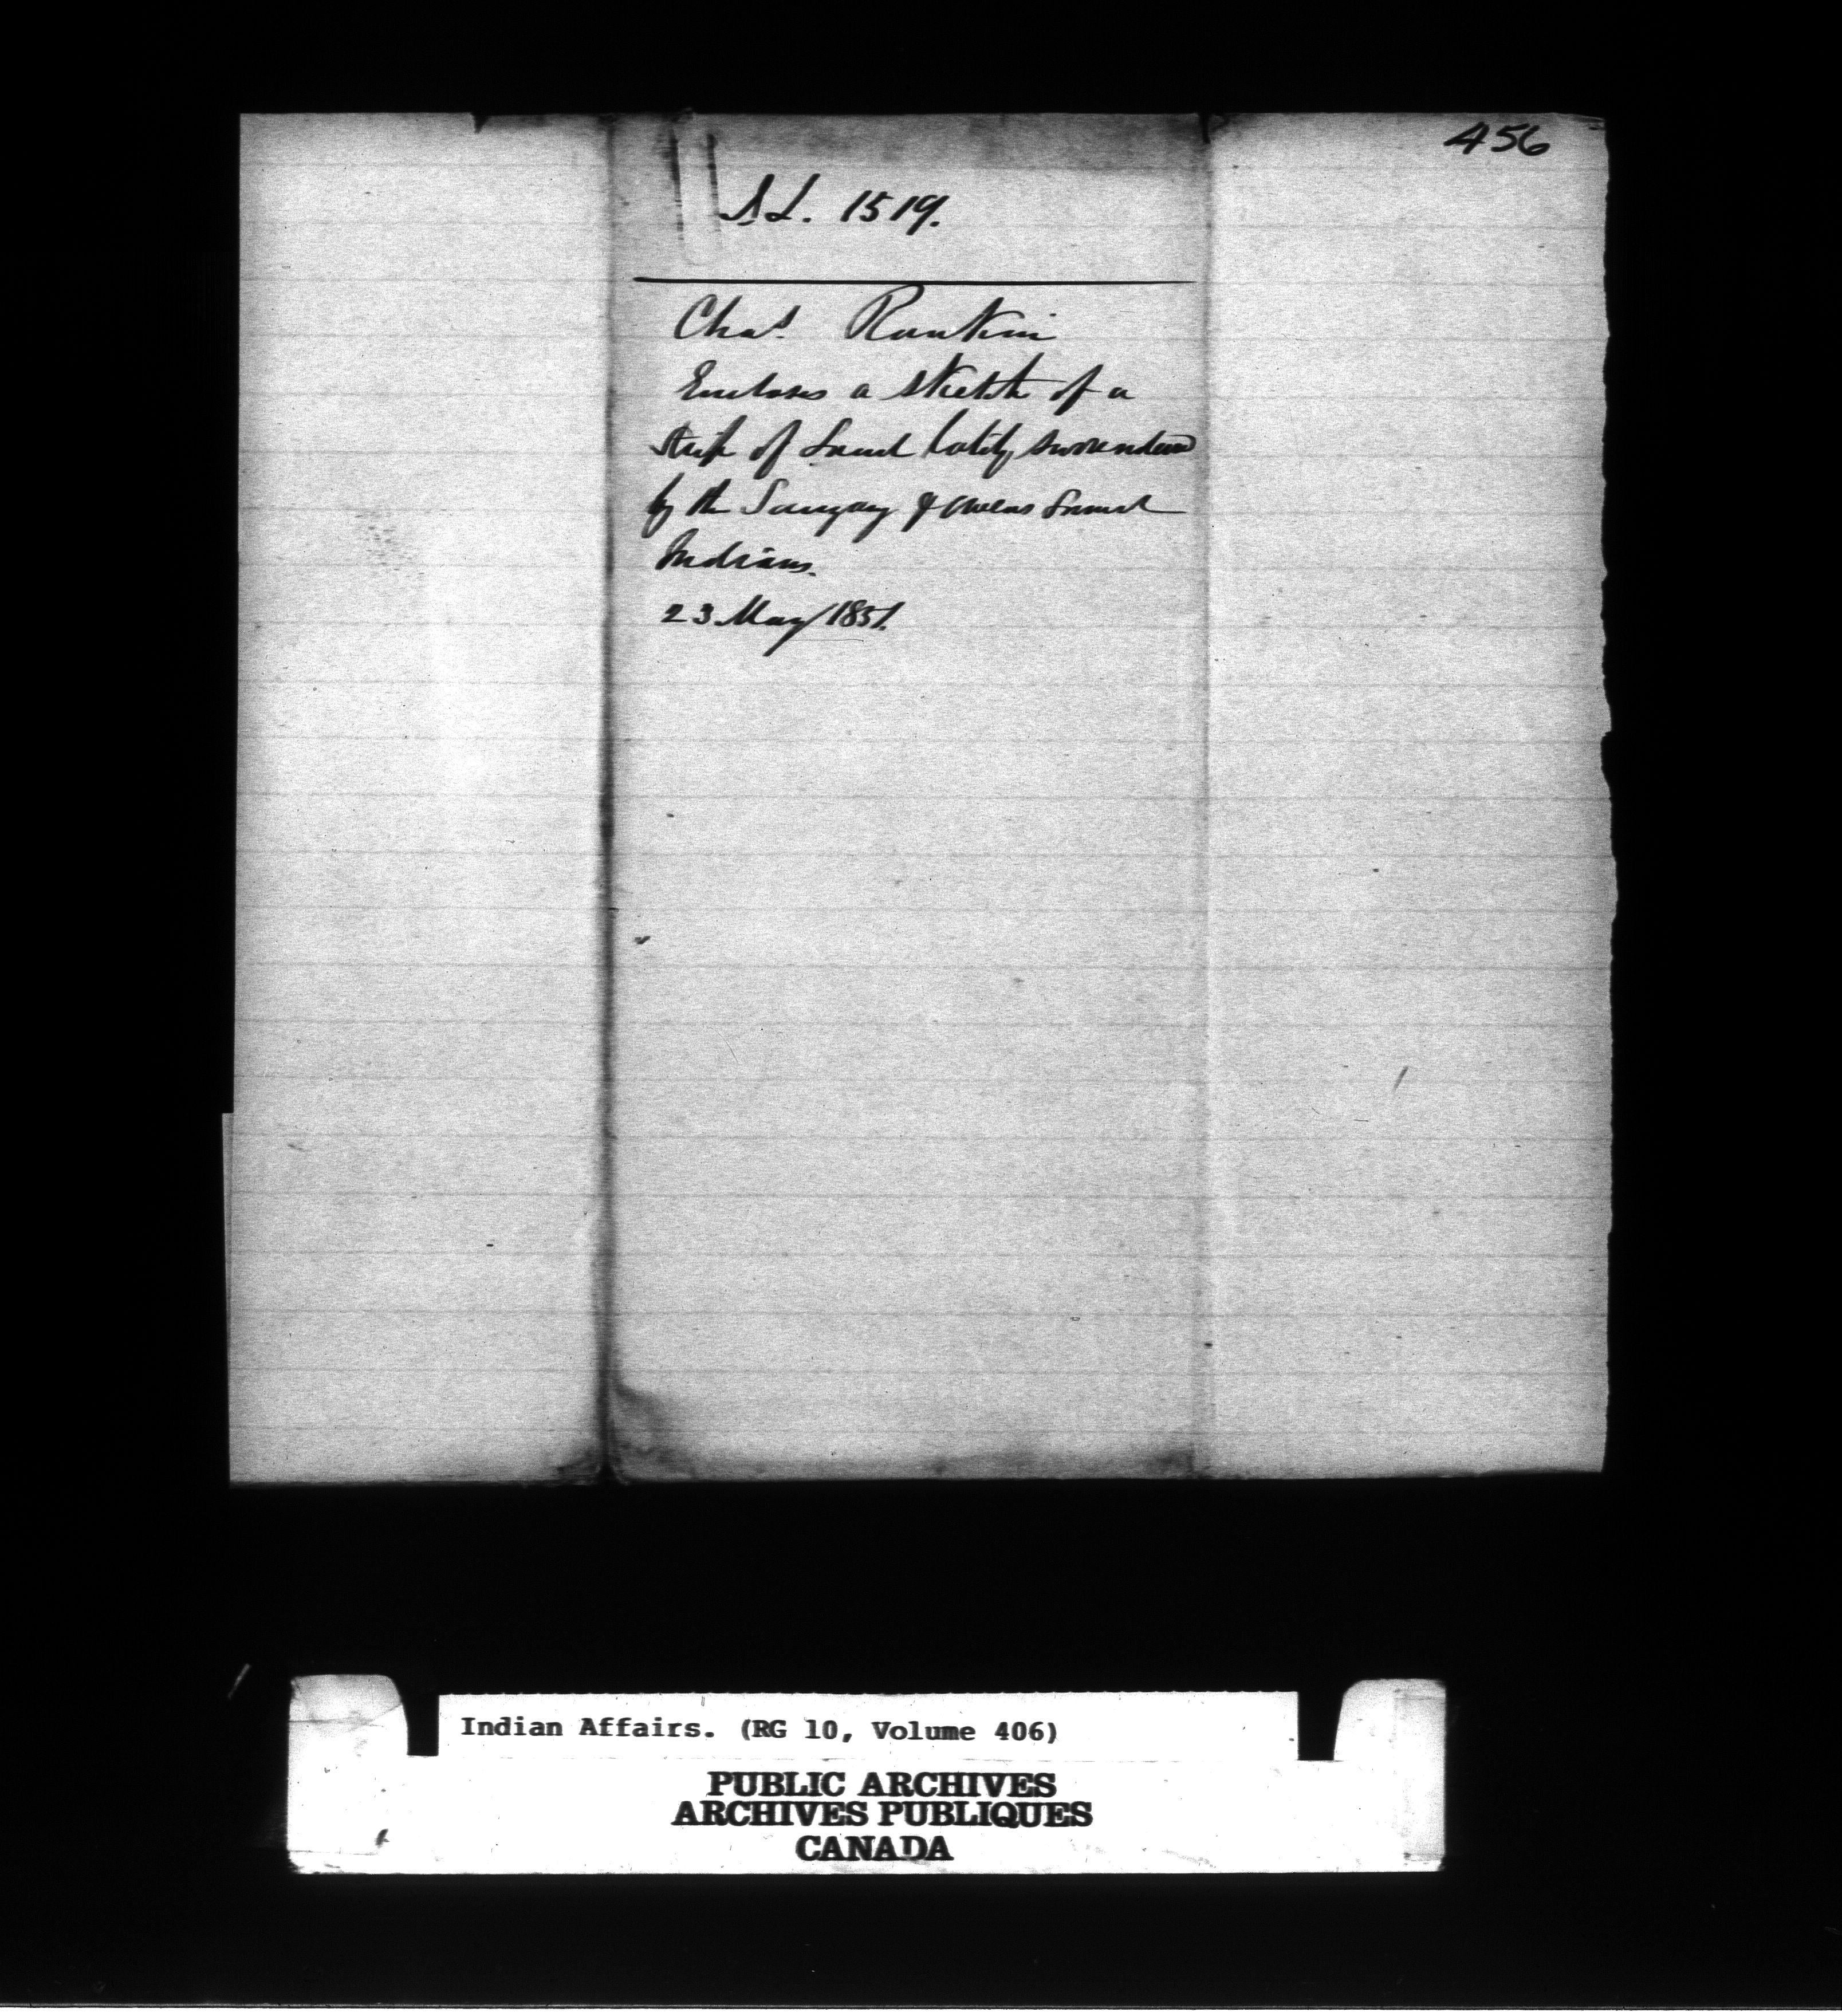 456
S.L. 1519.
Chas. Rankin
Encloses a sketch of a
strip of Land lately surrendered
by the Saugeeng & Owens Sound
Indians.
23 May 1851.
Indian Affairs. (RG 10, Volume 406)
PUBLIC ARCHIVES
ARCHIVES PUBLIQUES
CANADA